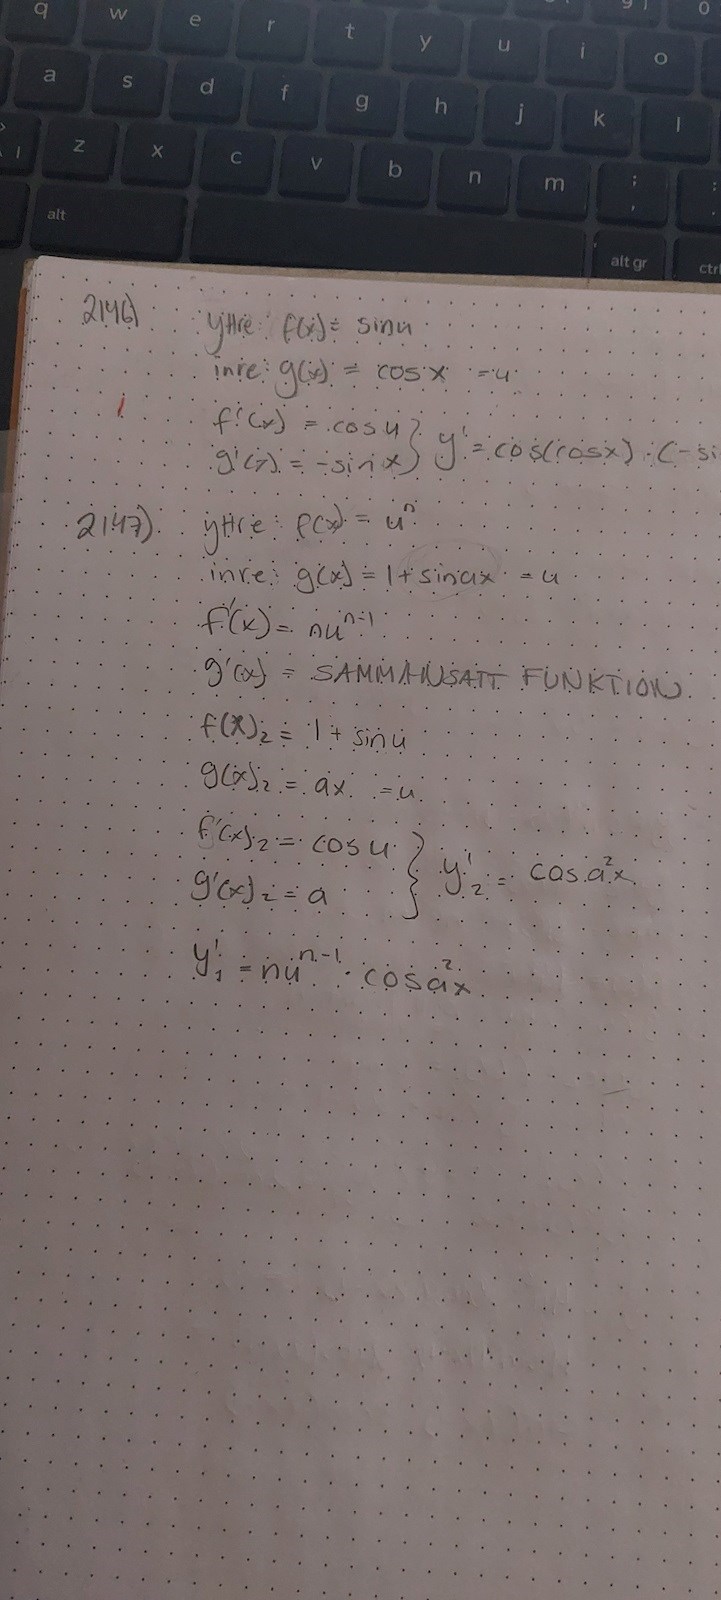 q w e r t y u i o
a s d f g h j k l
z x c v b n m ; ,
alt alt gr ctrl
2146) yttre: f(x) = sin u
inre: g(x) = cos x = u
f'(x) = cos u
g'(x) = -sin x } y' = cos(cosx) · (-si
2147). yttre: f(x) = uⁿ
inre: g(x) = 1 + sin ax = u
f'(x) = nuⁿ⁻¹
g'(x) = SAMMANSATT FUNKTION
f(x)₂ = 1 + sin u
g(x)₂ = ax = u
f'(x)₂ = cos u
g'(x)₂ = a } y'₂ = cos a²x
y'₁ = nuⁿ⁻¹ · cos a²x